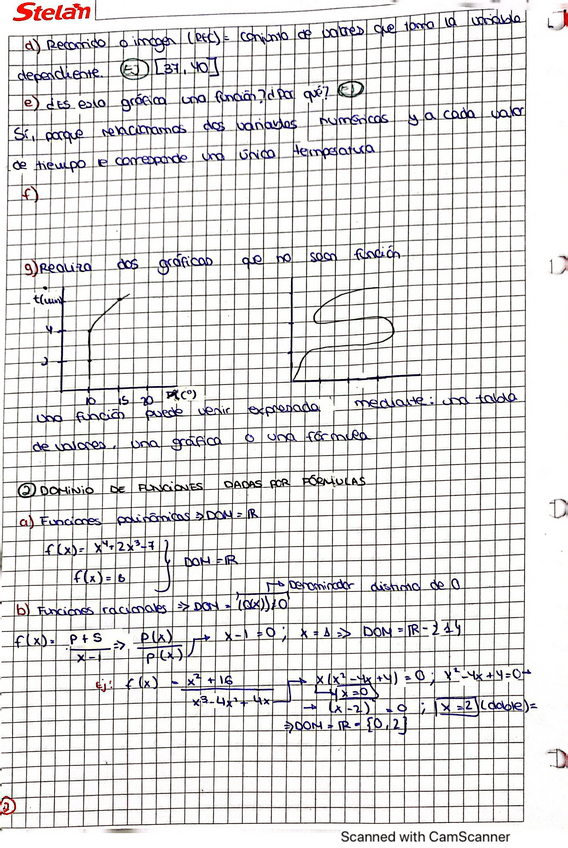 Stelan
d) Recorrido o imagen (Rec) = conjunto de valores que toma la variable
dependiente. Ej [37, 40]
e) ¿Es esta gráfica una función? ¿Por qué? Ej
Sí, porque relacionamos dos variables numéricas y a cada valor
de tiempo le corresponde una única temperatura
f)
g) Realiza dos gráficas que no sean función
t(min)
4
2
10 15 20 (°)
una función puede venir expresada mediante: una tabla
de valores, una gráfica o una fórmula
② DOMINIO DE FUNCIONES DADAS POR FÓRMULAS
a) Funciones polinómicas ⇒ DOM = ℝ
f(x) = x⁴+2x³-7
f(x) = 6
DOM = ℝ
Denominador distinto de 0
b) Funciones racionales ⇒ DOM = (Q(x)) ≠ 0
f(x) = P+S / x-1 ⇒ P(x) / P(x) → x-1=0 ; x=1 ⇒ DOM = ℝ - {1}
Ej: f(x) = x²+16 / x³-4x²+4x → x(x²-4x+4)=0 ; x²-4x+4=0 →
x=0
→ (x-2)²=0 ; x=2 (doble) =
⇒ DOM = ℝ - {0,2}
2
Scanned with CamScanner